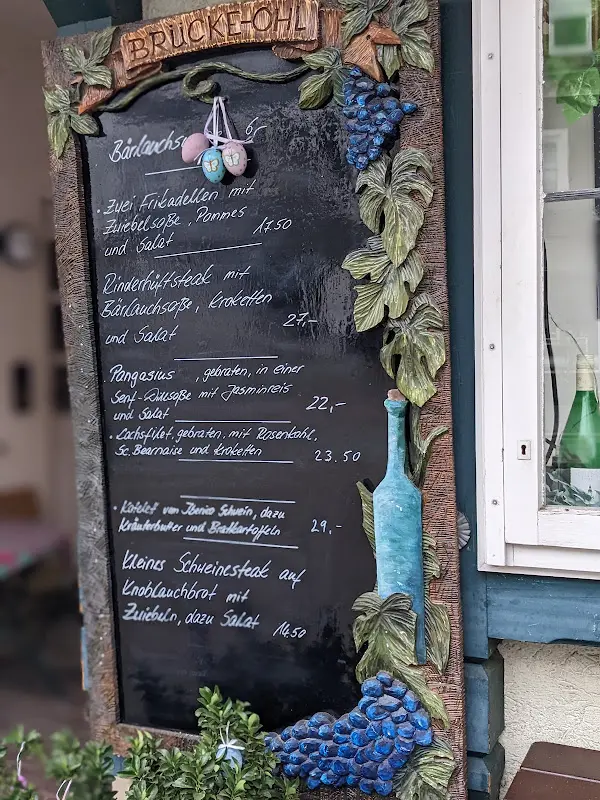 BRÜCKE-ÖHL
6,-
Zwei Frikadellen mit
Zwiebelsoße, Pommes
und Salat 17.50
Rinderhüftsteak mit
Bärlauchsoße, Kroketten
und Salat 27,-
Pangasius, gebraten, in einer
Senf-Dillsoße mit Jasminreis
und Salat 22,-
Lachsfilet, gebraten, mit Rosenkohl,
Sc. Bearnaise und Kroketten 23.50
Kotelet vom Iberico Schwein, dazu
Kräuterbutter und Bratkartoffeln 29,-
Kleines Schweinesteak auf
Knoblauchbrot mit
Zwiebeln, dazu Salat 14.50